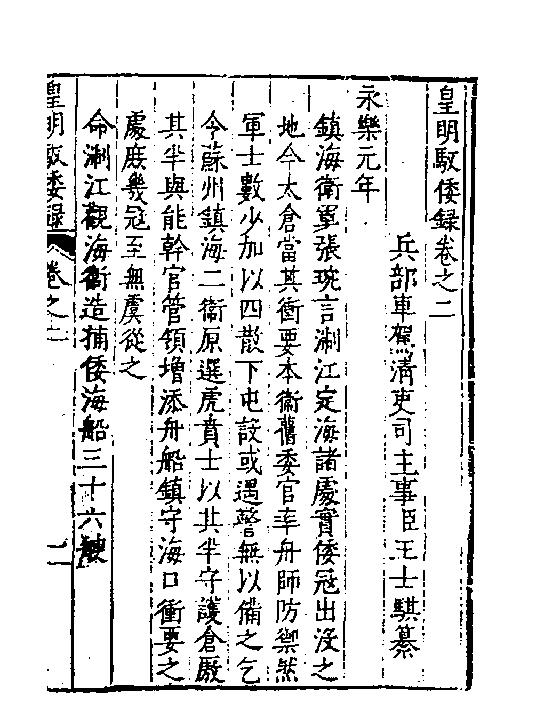 皇明馭倭録卷之二
兵部車駕清吏司主事臣王士騏纂
永樂元年
鎮海衛軍張琬言淛江定海諸處實倭冦出没之
地今太倉當其衝要本衛舊委官率舟師防禦然
軍士數少加以四散下屯設或遇警無以備之乞
今蘇州鎮海二衛原選虎賁士以其半守護倉厫
其半與能幹官管領增添舟船鎮守海口衝要之
處庶幾冦至無虞從之
命淛江觀海衛造捕倭海船三十六艘
皇明馭倭録 卷之二 一